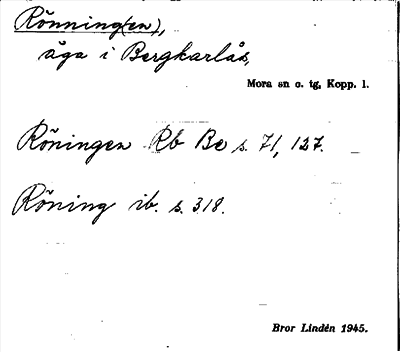 Rönning(en),
äga i Bergkarlås,
Mora sn o. tg, Kopp. l.
Röningen Rb Be s. 71, 127.
Röning ib. s. 318.
Bror Lindén 1945.